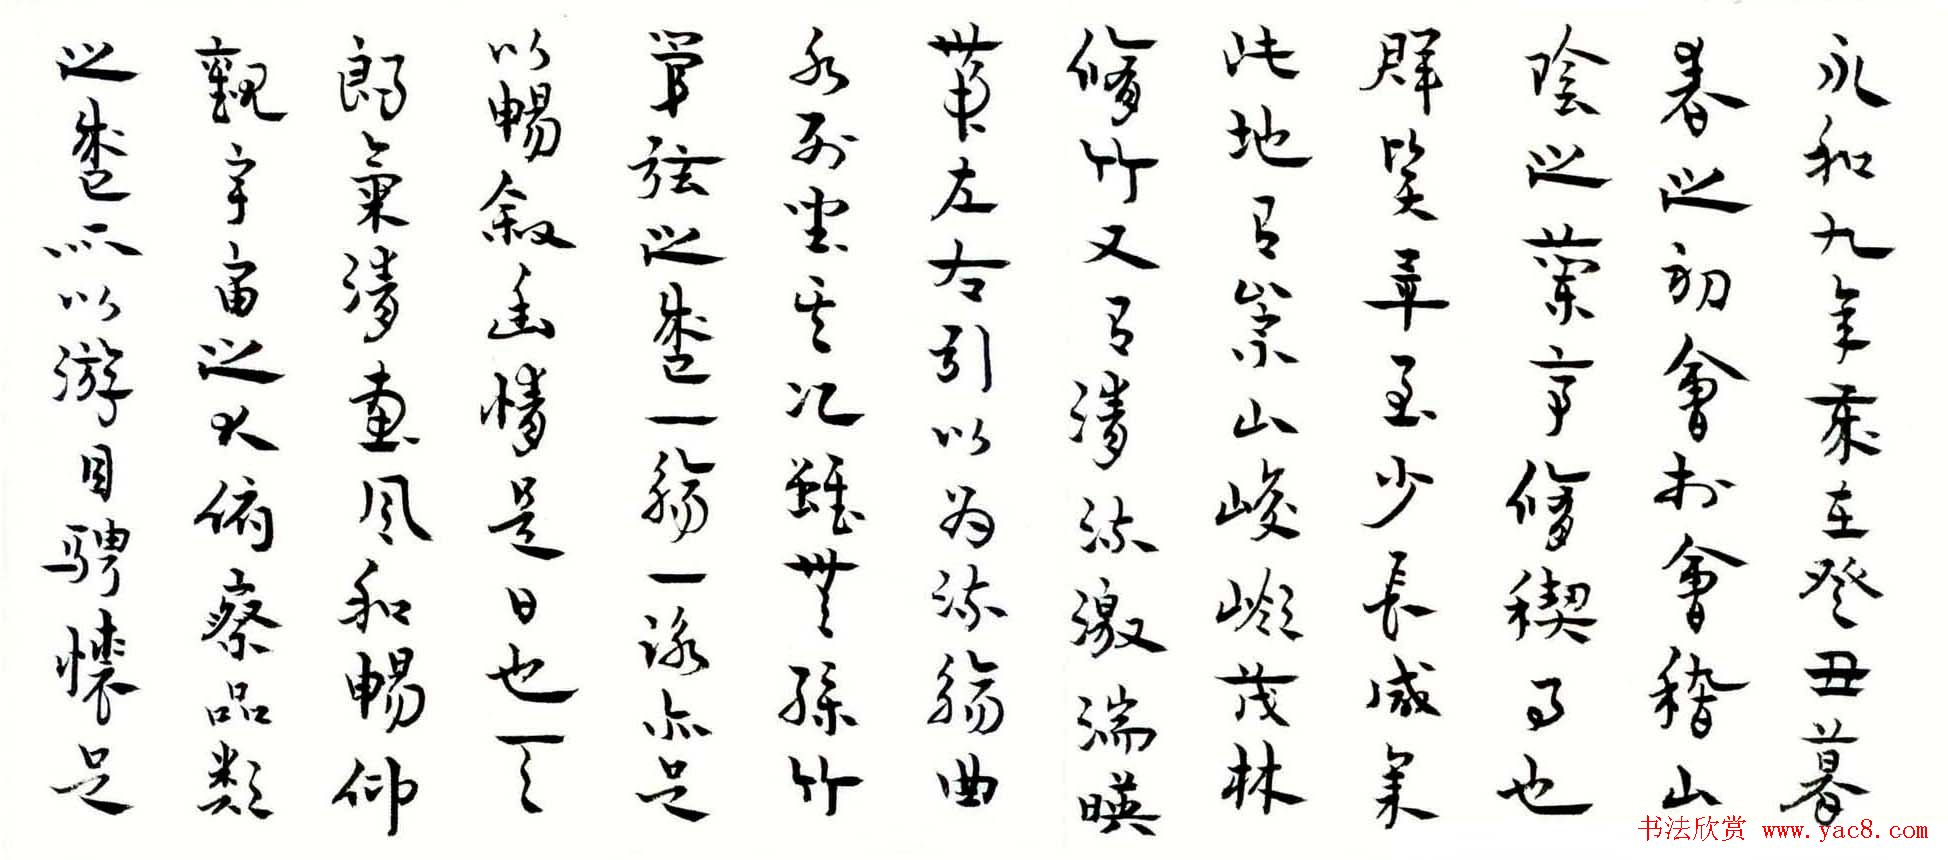 永和九年歲在癸丑暮
春之初會於會稽山
陰之蘭亭修稧事也
群賢畢至少長咸集
此地有崇山峻嶺茂林
修竹又有清流激湍暎
帶左右引以為流觴曲
水列坐其次雖無絲竹
管弦之盛一觴一詠亦足
以暢敘幽情是日也天
朗氣清惠風和暢仰
觀宇宙之大俯察品類
之盛所以游目騁懷足
书法欣赏 www.yac8.com